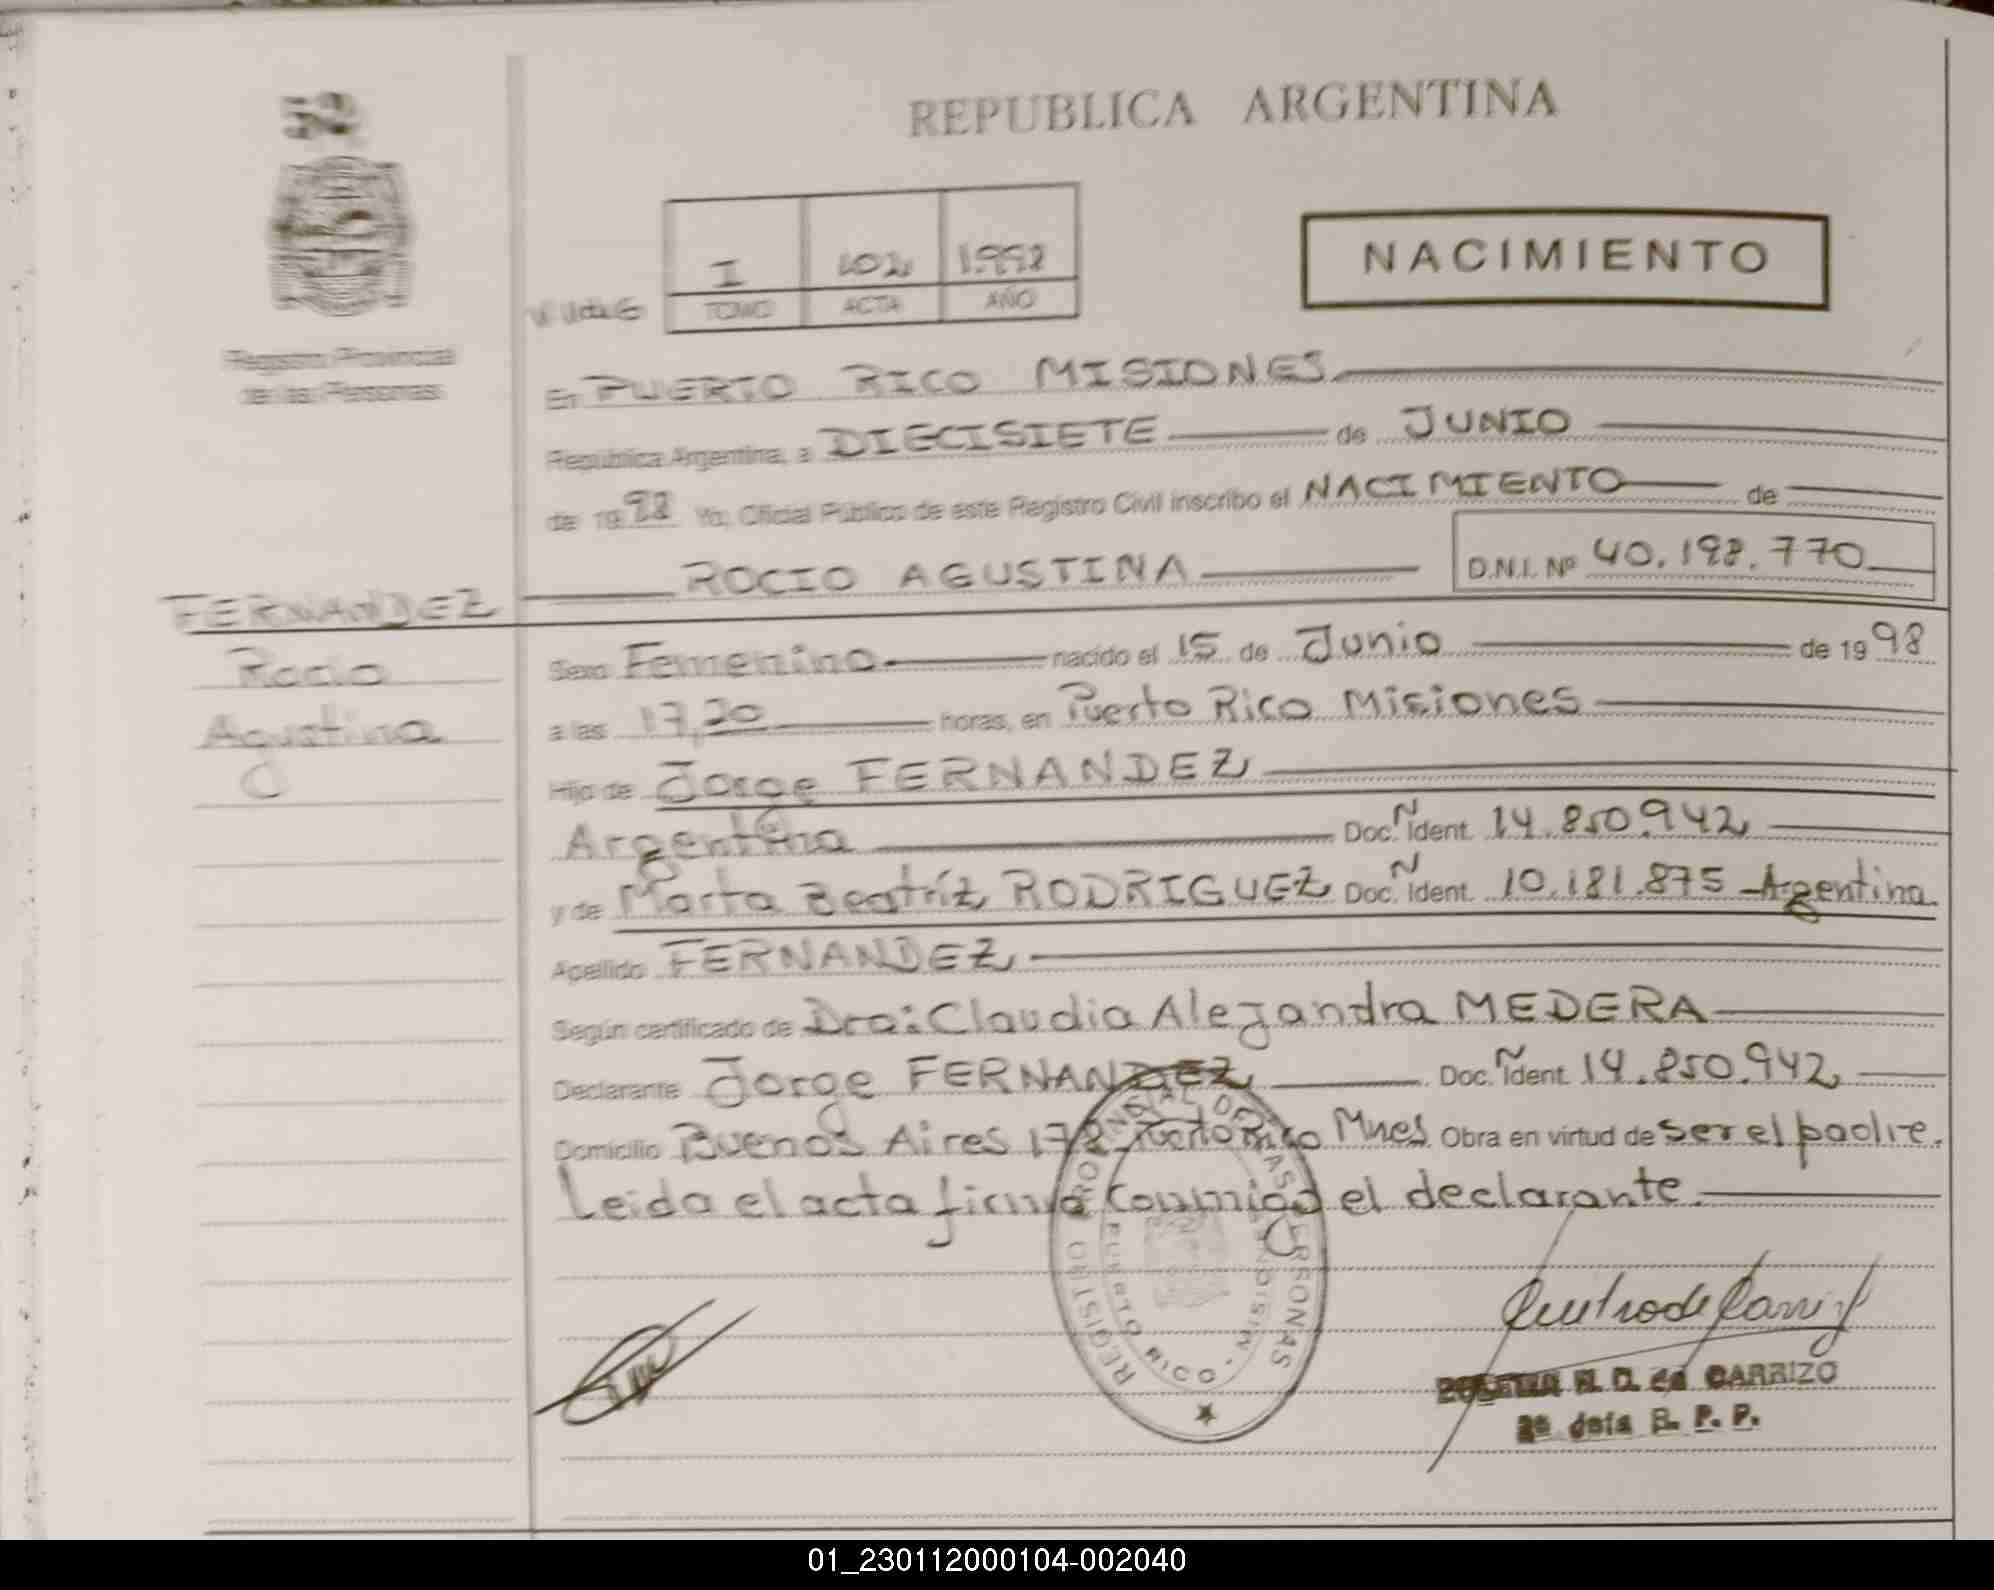 52
REPUBLICA ARGENTINA
I 102 1.998
TOMO ACTA AÑO
NACIMIENTO
Registro Provincial
de las Personas
En PUERTO RICO MISIONES
República Argentina, a DIECISIETE de JUNIO
de 1998 Yo, Oficial Público de este Registro Civil inscribo el NACIMIENTO de
ROCIO AGUSTINA D.N.I. Nº 40.198.770
FERNANDEZ
Rocio
Agustina
Sexo Femenino nacido el 15 de Junio de 1998
a las 17,20 horas, en Puerto Rico Misiones
Hijo de Jorge FERNANDEZ
Argentina Doc. Ñ Ident. 14.850.942
y de Marta Beatríz RODRIGUEZ Doc. Ñ Ident. 10.181.875 Argentina
Apellido FERNANDEZ
Según certificado de Dra: Claudia Alejandra MEDERA
Declarante Jorge FERNANDEZ Doc. Ñ Ident. 14.850.942
Domicilio Buenos Aires 178 Puerto Rico Mnes. Obra en virtud de ser el padre.
Leida el acta firma conmigo el declarante.
REGISTRO PROVINCIAL DE LAS PERSONAS
PUERTO RICO - MISIONES
de CARRIZO
R. P. P.
01_230112000104-002040